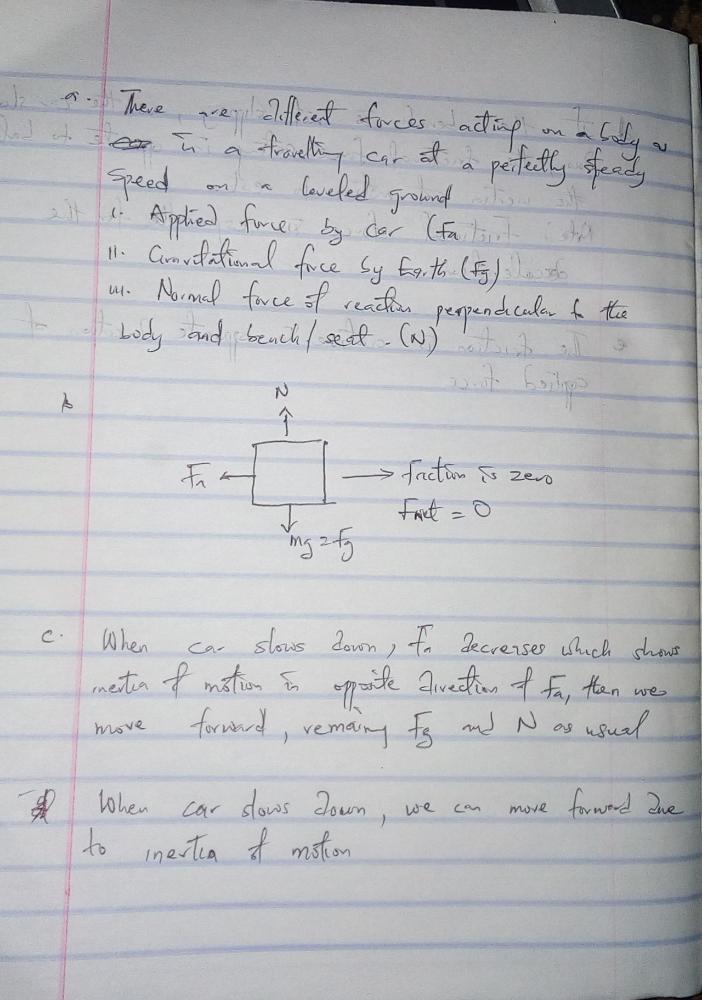 a. There are different forces acting on a body
in a travelling car at a perfectly steady
speed on a leveled ground
i. Applied force by car (Fa
ii. Gravitational force by Earth (Fg)
iii. Normal force of reaction perpendicular to the
body and bench/seat. (N)
b
N
Fa
friction is zero
Fnet = 0
mg = Fg
c. When car slows down, Fa decreases which shows
inertia of motion in opposite direction of Fa, then we
move forward, remaining Fg and N as usual
When car slows down, we can move forward due
to inertia of motion